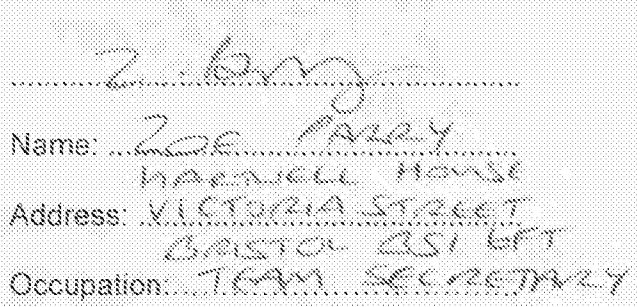 Z. Parry
Name: ZOE PARRY
HARTWELL HOUSE
Address: VICTORIA STREET
BRISTOL BS1 6FT
Occupation: TEAM SECRETARY